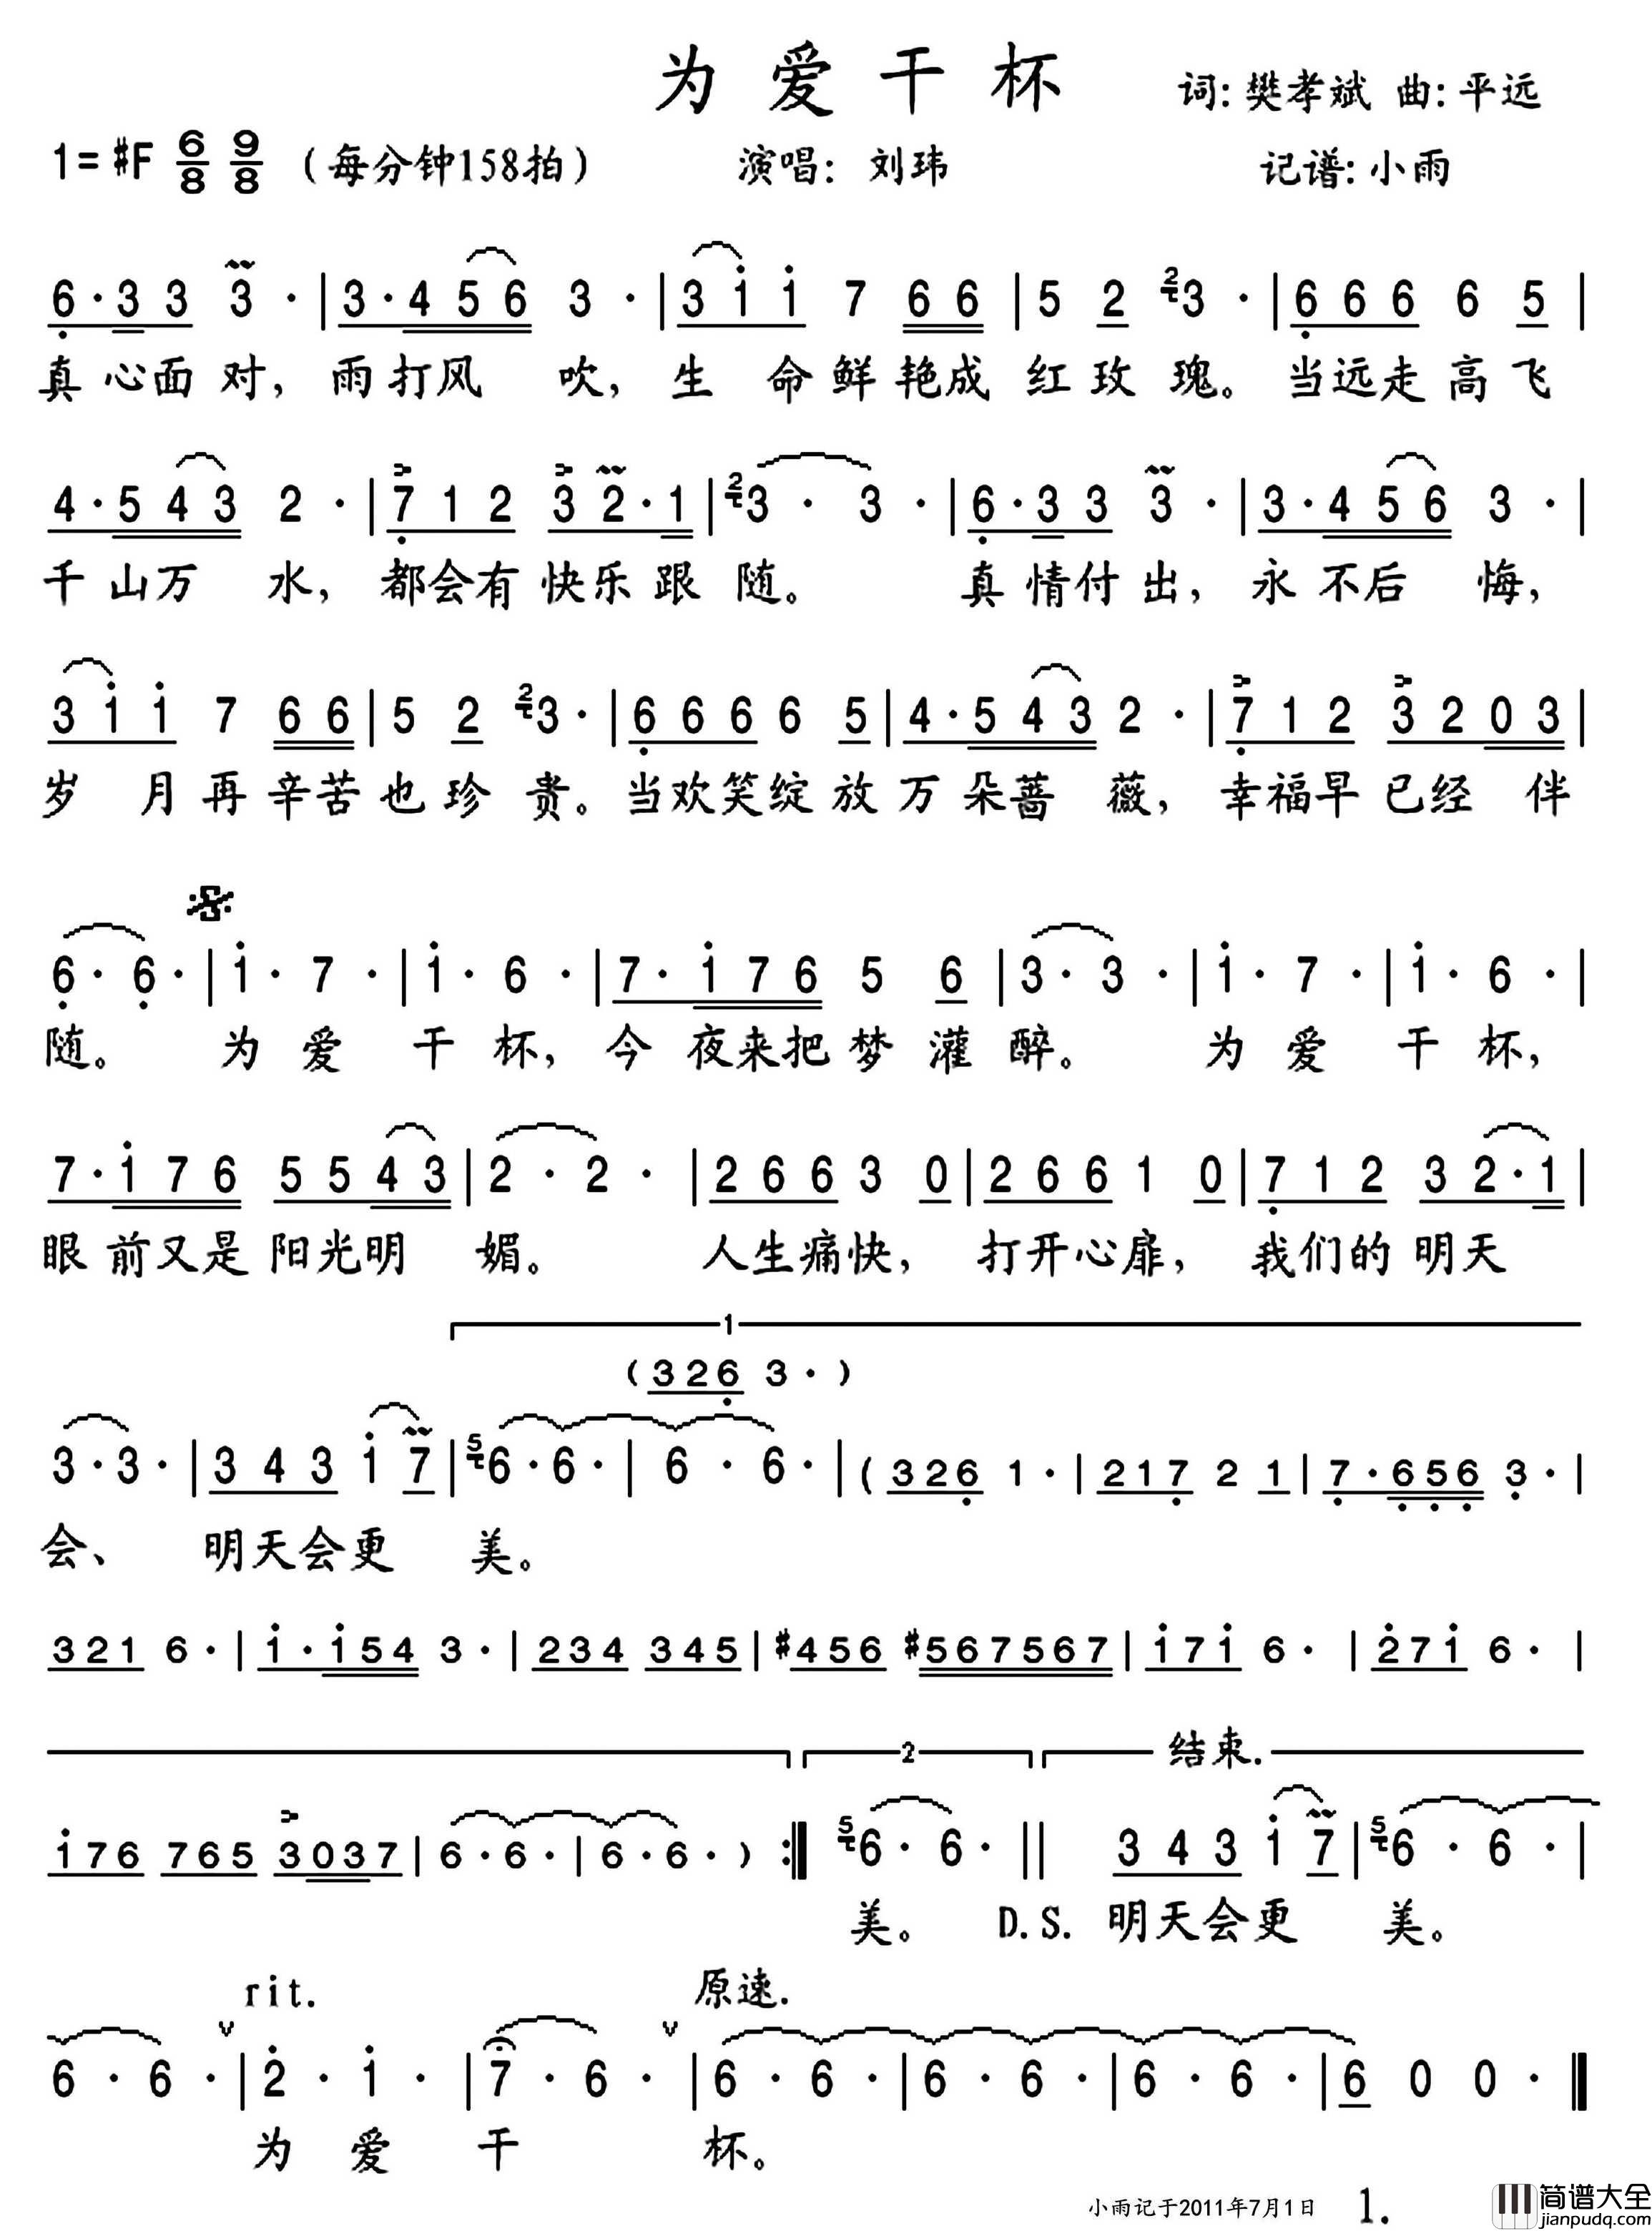 为爱干杯
词:樊孝斌 曲:平远
1=#F 6/8 9/8 (每分钟158拍) 演唱: 刘玮 记谱:小雨
6·33 3·|3·456 3·|3i i 7 66|5 2 3·|666 6 5|
真心面对,雨打风吹,生命鲜艳成红玫瑰。当远走高飞
4·543 2·|712 32·1|3·3·|6·33 3·|3·456 3·|
千山万水,都会有快乐跟随。真情付出,永不后悔,
3i i 7 66|5 2 3·|666 6 5|4·543 2·|712 3203|
岁月再辛苦也珍贵。当欢笑绽放万朵蔷薇,幸福早已经伴
6·6·|i·7·|i·6·|7·i76 5 6|3·3·|i·7·|i·6·|
随。为爱干杯,今夜来把梦灌醉。为爱干杯,
7·i76 5543|2·2·|266 3 0|266 1 0|712 32·1|
眼前又是阳光明媚。人生痛快,打开心扉,我们的明天
1
(326 3·)
3·3·|343 i 7|6·6·|6·6·|(326 1·|217 2 1|7·656 3·|
会、明天会更美。
321 6·|i·i54 3·|234 345|#456 #567567|i7i 6·|27i 6·|
2 结束.
i76 765 3037|6·6·|6·6·):‖6·6·‖343 i 7|6·6·|
美。D.S.明天会更美。
rit. 原速.
6·6·|2·i·|7·6·|6·6·|6·6·|6·6·|6 0 0·‖
为爱干杯。
小雨记于2011年7月1日 1.
简谱大全
jianpudq.com